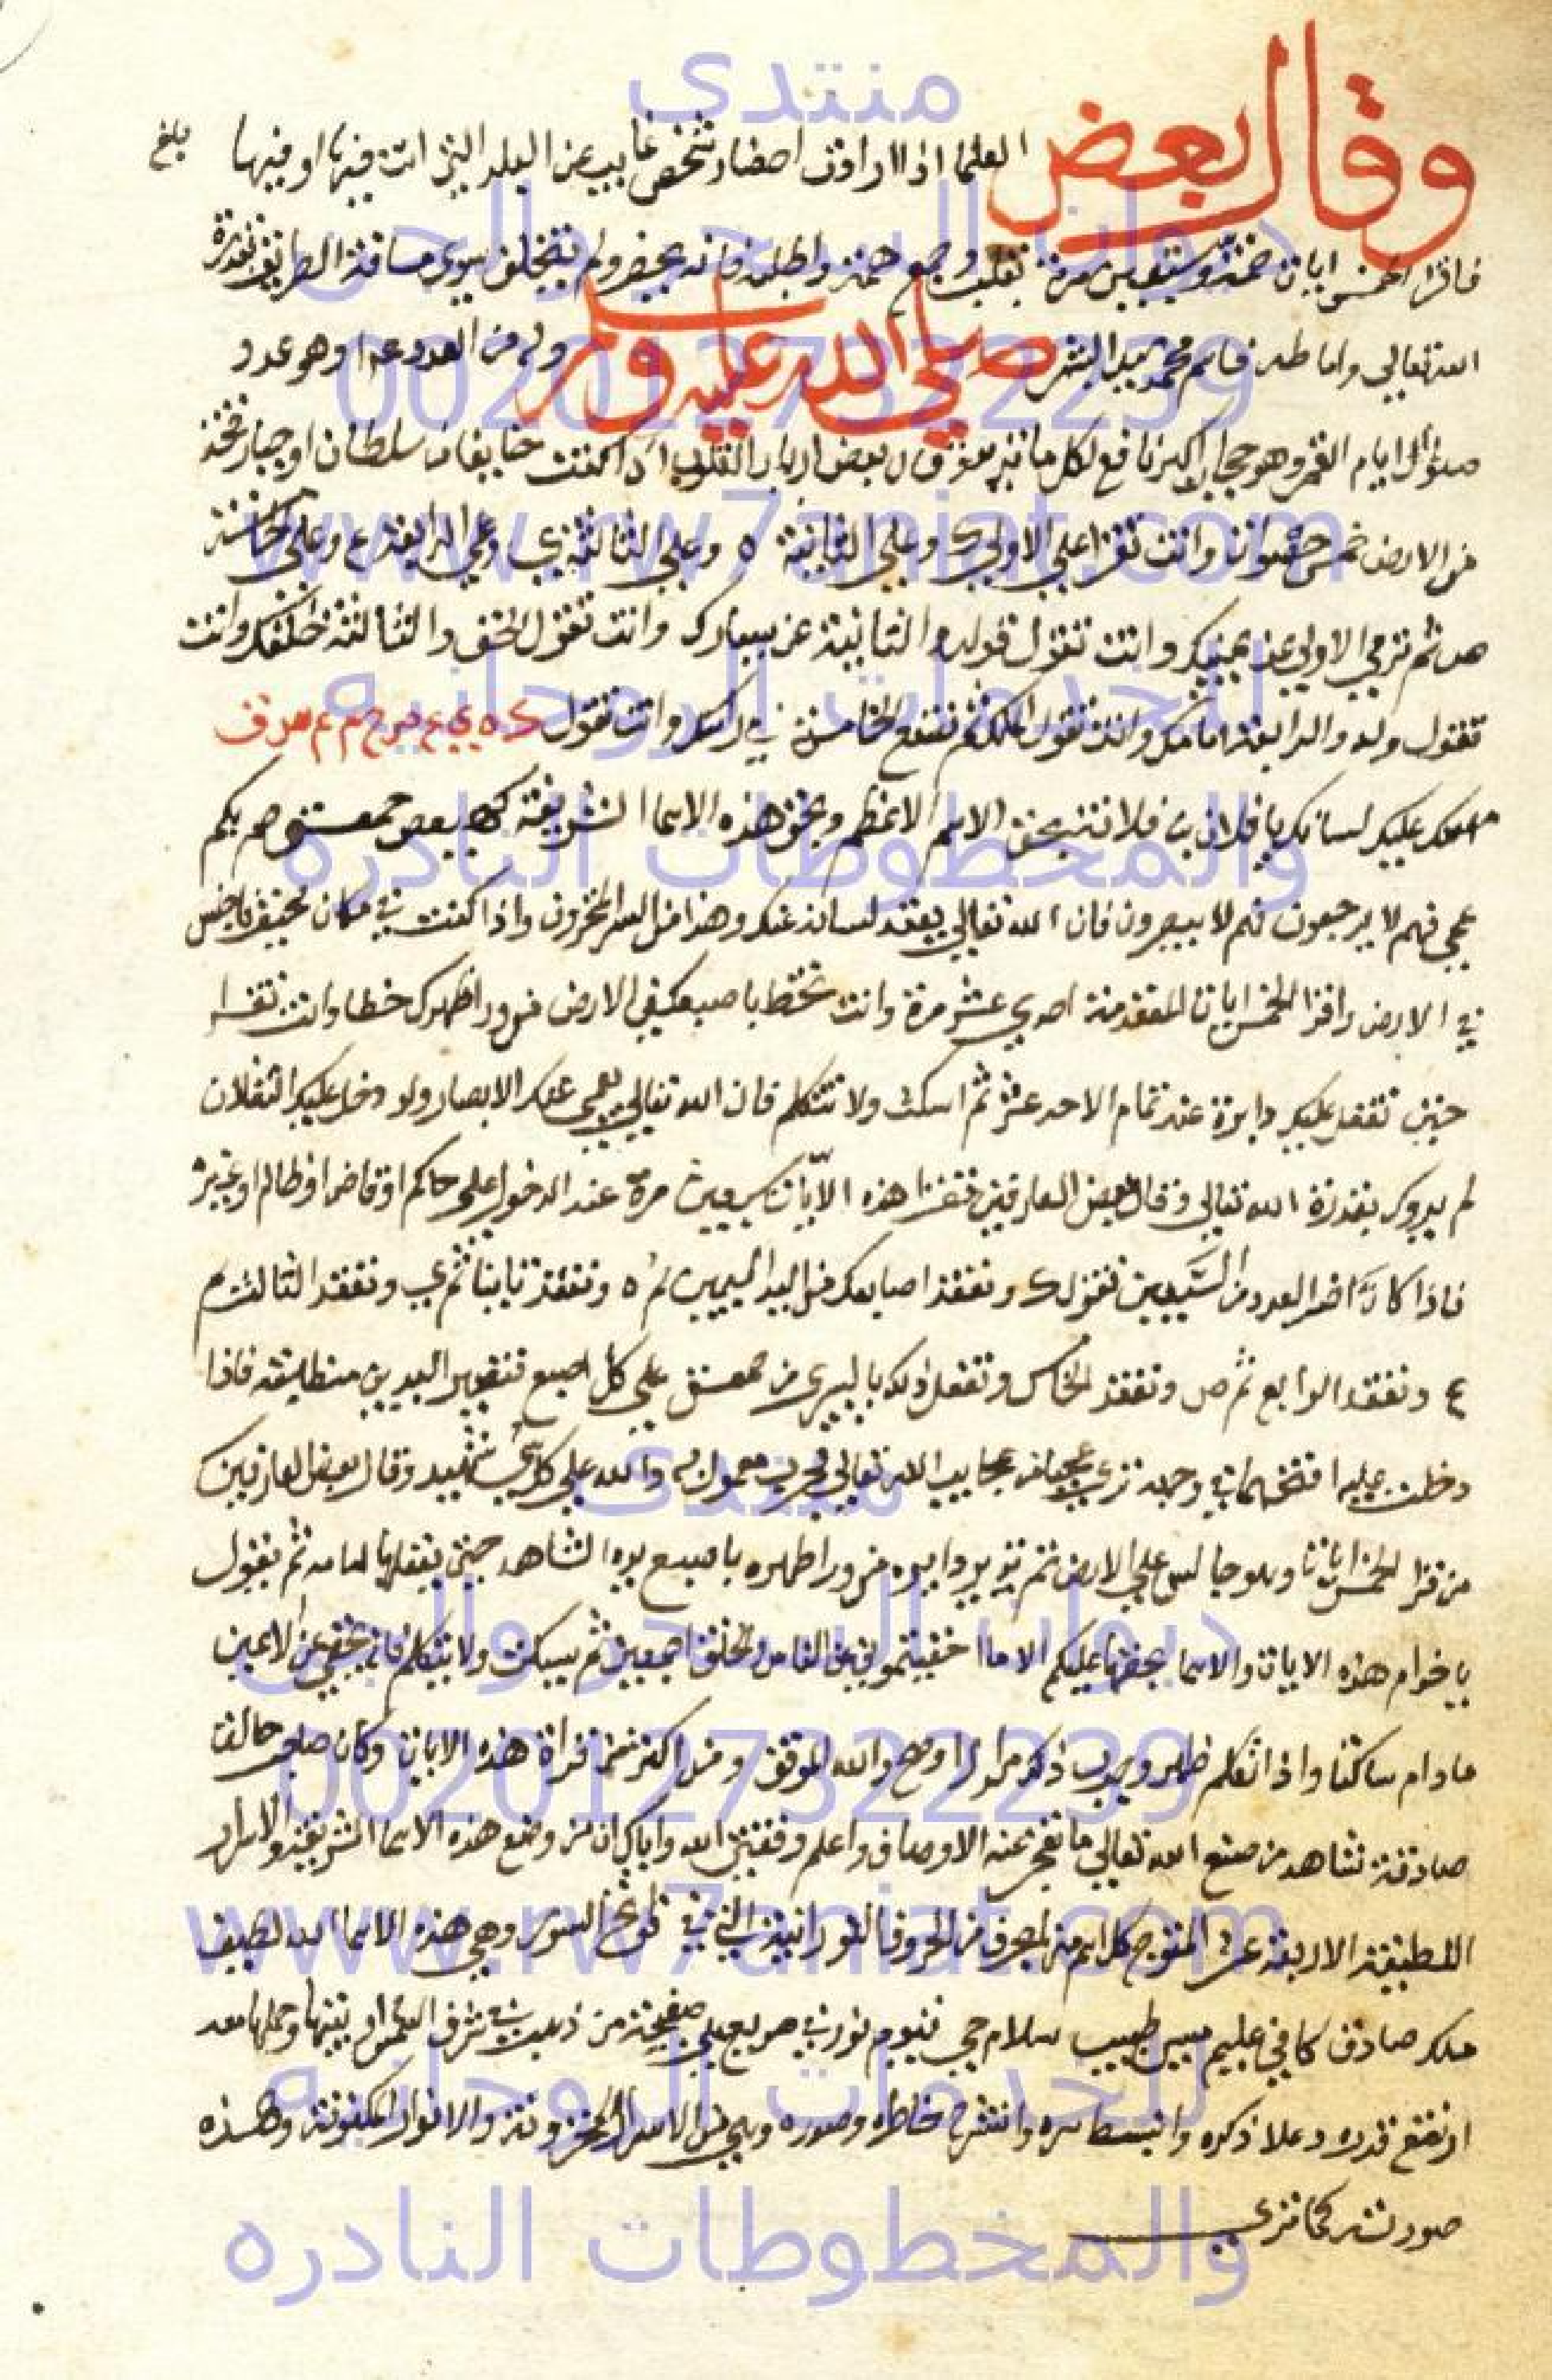 وقال بعض العلما اذا اردت احضار شخص غايب من البلد التي انت فيها او فيها بلغ
فاقرا الخمس ايات خمسة وسبعين مرة بقلب وجمع همة واطلبه فانه يحضر ولم يتخلف سوي مسافة الطريق بقدرة
الله تعالي واما طه فاسم محمد سيد البشر صلي الله عليه وسلم وله من العدد عدا وهو عدد
ايام القمر وهو حجاب اكبر نافع لكل ما تريد وقال بعض ارباب القلوب اذا كنت خايفا من سلطان او جبار فخذ
من الارض خمس حصوات وانت تقرا علي الاولي ك وعلي الثانية ه وعلي الثالثة ي وعلي الرابعة ع وعلي الخامسة
ص ثم ترمي الاولي عن يمينك وانت تقول قوله والثانية عن يسارك وانت تقول الحق والثالثة خلفك وانت
تقول وله والرابعة امامك وانت تقول الملك ثم تضع الخامسة في راسك وانت تقول ك ه ي ع ص ح م ع س ق
عليك لسانك يا فلان بن فلانة بحق الاسم الاعظم وبحق هذه الاسما الشريفة كهيعص حمعسق صم بكم
عمي فهم لا يرجعون فهم لا يبصرون فان الله تعالي يعقد لسانه عنك وهذا من السر المخزون واذا كنت في مكان مخيف فاجلس
في الارض واقرا الخمس ايات المتقدمة احدي عشر مرة وانت تخط باصبعك في الارض من ورا ظهرك خطا وانت تقرا
حتي تقفل عليك دايرة عند تمام الاحد عشر ثم اسكت ولا تتكلم فان الله تعالي يعمي عنك الابصار ولو دخل عليك الثقلان
لم يروك بقدرة الله تعالي وقال بعض العارفين تقرا هذه الايات سبعين مرة عند الدخول علي حاكم او قاض او ظالم او غيره
فاذا كان اخر العدد من السبعين تقول ك وتعقد اصابعك من اليد اليمين ثم ه وتعقد ثانيا ثم ي وتعقد الثالث ثم
ع وتعقد الرابع ثم ص وتعقد الخامس وتفعل ذلك باليسري من حمعسق علي كل اصبع فتصير اليدين منطبقة فاذا
دخلت عليه افتحهما في وجهه تري عجبا من عجايب الله تعالي مجرب معمول به والله علي كل شي شهيد وقال بعض العارفين
من قرا الخمس ايات وهو جالس علي الارض ثم يدير دايره من ورا ظهره باصبع يده الشاهد حتي يقفلها امامه ثم يقول
يا خدام هذه الايات والاسما بحقها عليكم الا ما اخفيتموني عن الناس والخلق اجمعين ثم يسكت ولا يتكلم فانه يخفي عن الاعين
ما دام ساكتا واذا تكلم ظهر وجرب ذلك مرارا وصح والله الموفق ومن اكثر من قراة هذه الايات وكان صاحب حالة
صادقة شاهد من صنع الله تعالي ما تعجز عنه الاوصاف واعلم وفقني الله واياك ان من وضع هذه الاسما الشريفة والاسرار
اللطيفة الاربعة عشر المتوج كل اسم منها بحرف من الحروف النورانية التي في فواتح السور وهي هذه الاسما الله لطيف
ملك صادق كافي عليم مبين طيب سلام حي قيوم نور في مربع علي صفيحة من ذهب في شرف القمر او بيتها وحملها معه
ارتفع قدره وعلا ذكره وانبسط سره وانشرح خاطره وصدره وهي من الاسرار المخزونة والانوار المكنونة وهذه
صورته كما تري
منتدى
ديوان السحر والجن
0020127322239
www.rw7aniat.com
للخدمات الروحانيه
والمخطوطات النادره
منتدى
ديوان السحر والجن
0020127322239
www.rw7aniat.com
للخدمات الروحانيه
والمخطوطات النادره